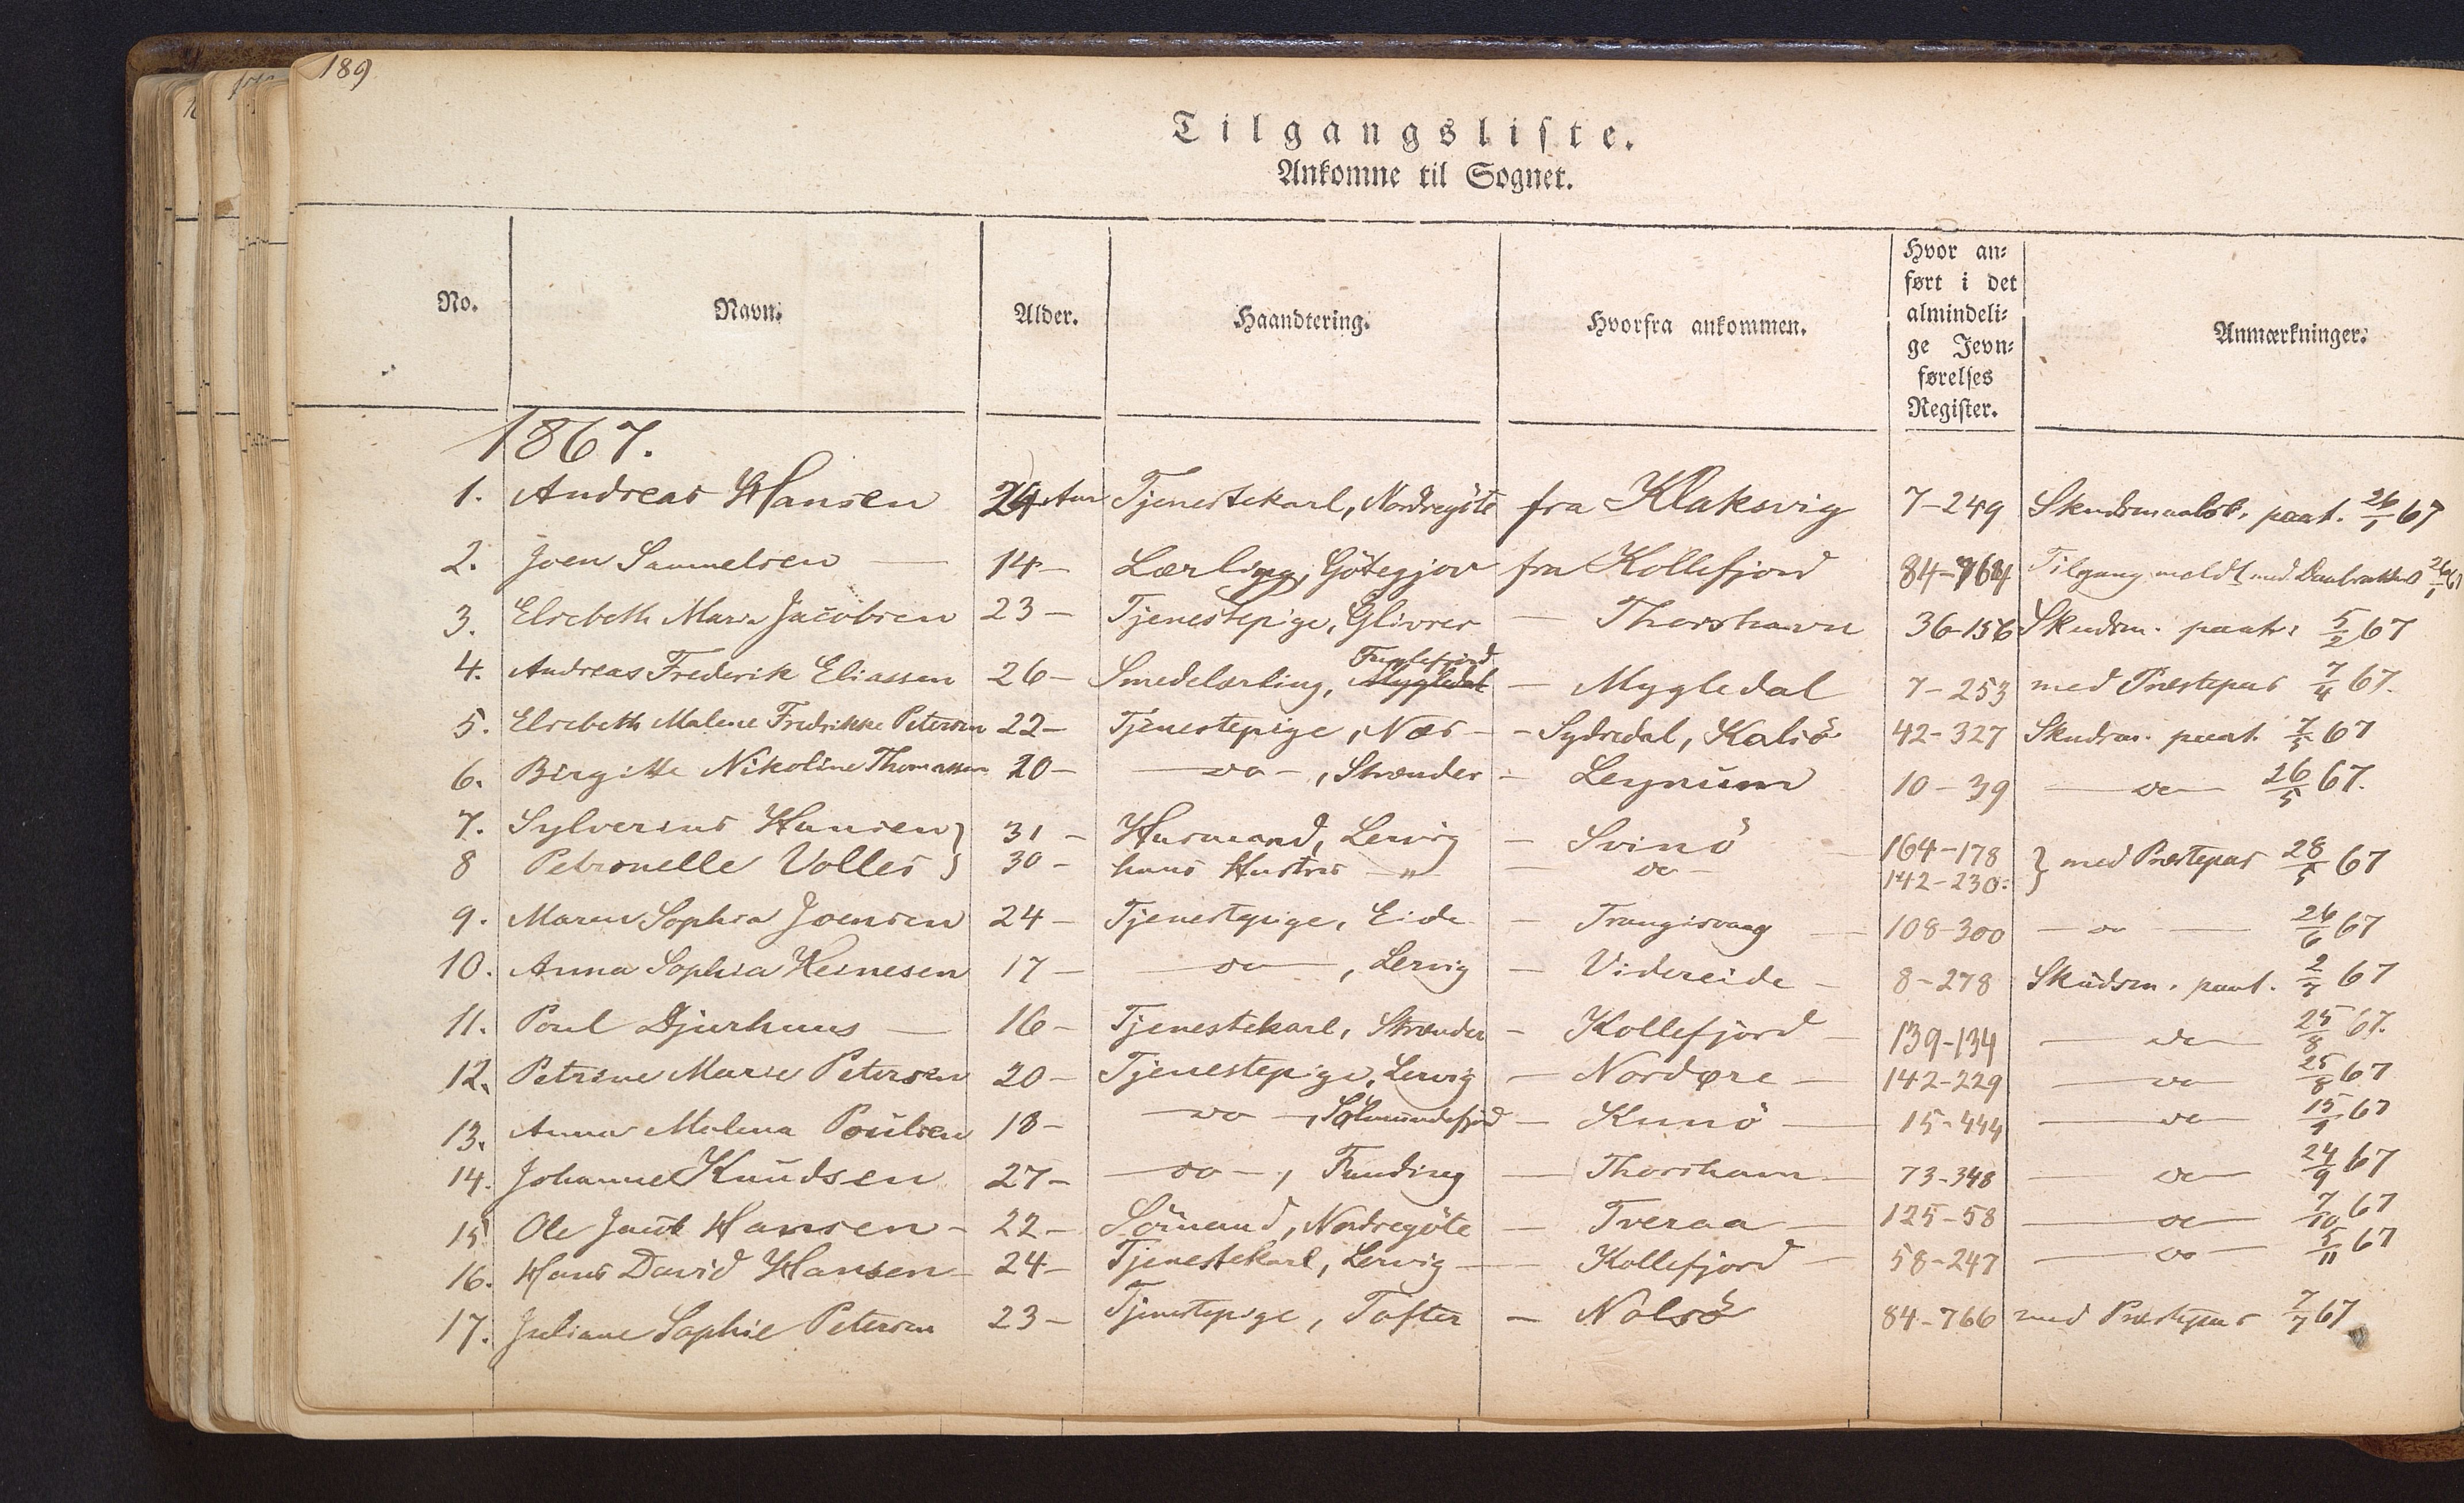 189
Tilgangsliste.
Ankomne til Sognet.
No. Navn. Alder. Haandtering. Hvorfra ankommen. Hvor an- ført i det almindeli- ge Jevn- førelses Register. Anmærkninger.
1867.
1. Andreas Hansen 24 Aar Tjenestekarl, Nordregöte fra Klaksvig 7-249 Skudsmaalsb. paat. 26/1 67
2. Joen Samuelsen — 14 — Lærling, Götegjov fra Kollefjord 84-764 Tilgang meldt med 26/1 67
3. Elsebeth Marie Jacobsen 23 — Tjenestepige, Glivrer — Thorshavn 36-156 Skudsm. paat. 5/2 67
4. Andreas Frederik Eliassen 26 — Smedelærling, Mygledal Fuglefjord — Mygledal 7-253 med Præstepas 7/4 67.
5. Elsebeth Malene Fredrikke Petersen 22 — Tjenestepige, Næs — Sydredal, Kalsö 42-327 Skudsm. paat. 7/5 67
6. Birgitte Nikoline Thomassen 20 — — do —, Strænder — Leynum 10-39 — do — 26/5 67.
7. Sylverius Hansen } 31 — Husmand, Lervig — Svinö 164-178 } med Præstepas 28/5 67
8 Petronelle Volles } 30 — hans Hustru — " — do — 142-230
9. Maren Sophia Joensen 24 — Tjenestepige, Eide — Trangisvaag — 108-300 — do — 26/6 67
10. Anna Sophia Heinesen 17 — — do —, Lervig — Videreide — 8-278 Skudsm. paat. 2/7 67
11. Poul Djurhuus — 16 — Tjenestekarl, Strænder — Kollefjord — 139-134 — do — 25/8 67.
12. Petrine Marie Petersen 20 — Tjenestepige, Lervig — Nordøre — 142-229 — do — 25/8 67
13. Anna Malena Poulsen 18 — — do —, Sölmundefjord — Kunö — 15-444 — do — 15/9 67
14. Johanne Knudsen 27 — — do —, Funding — Thorshavn — 73-348 — do — 24/9 67
15 Ole Jacob Hansen — 22 — Sömand, Nordregöte — Tveraa — 125-58 — do — 7/10 67
16. Hans David Hansen — 24 — Tjenestekarl, Lervig — Kollefjord — 58-247 — do — 5/11 67
17. Juliane Sophie Petersen 23 — Tjenestepige, Tofter — Nolsö 84-766 med Præstepas 7/7 67